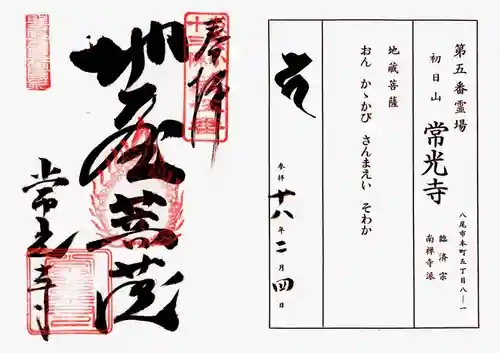 奉拝
地蔵菩薩
常光寺
第五番霊場
初日山 常光寺
臨済宗
南禅寺派
八尾市本町五丁目八ー一
地蔵菩薩
おん かゝかび さんまえい そわか
参拝 十八年二月四日